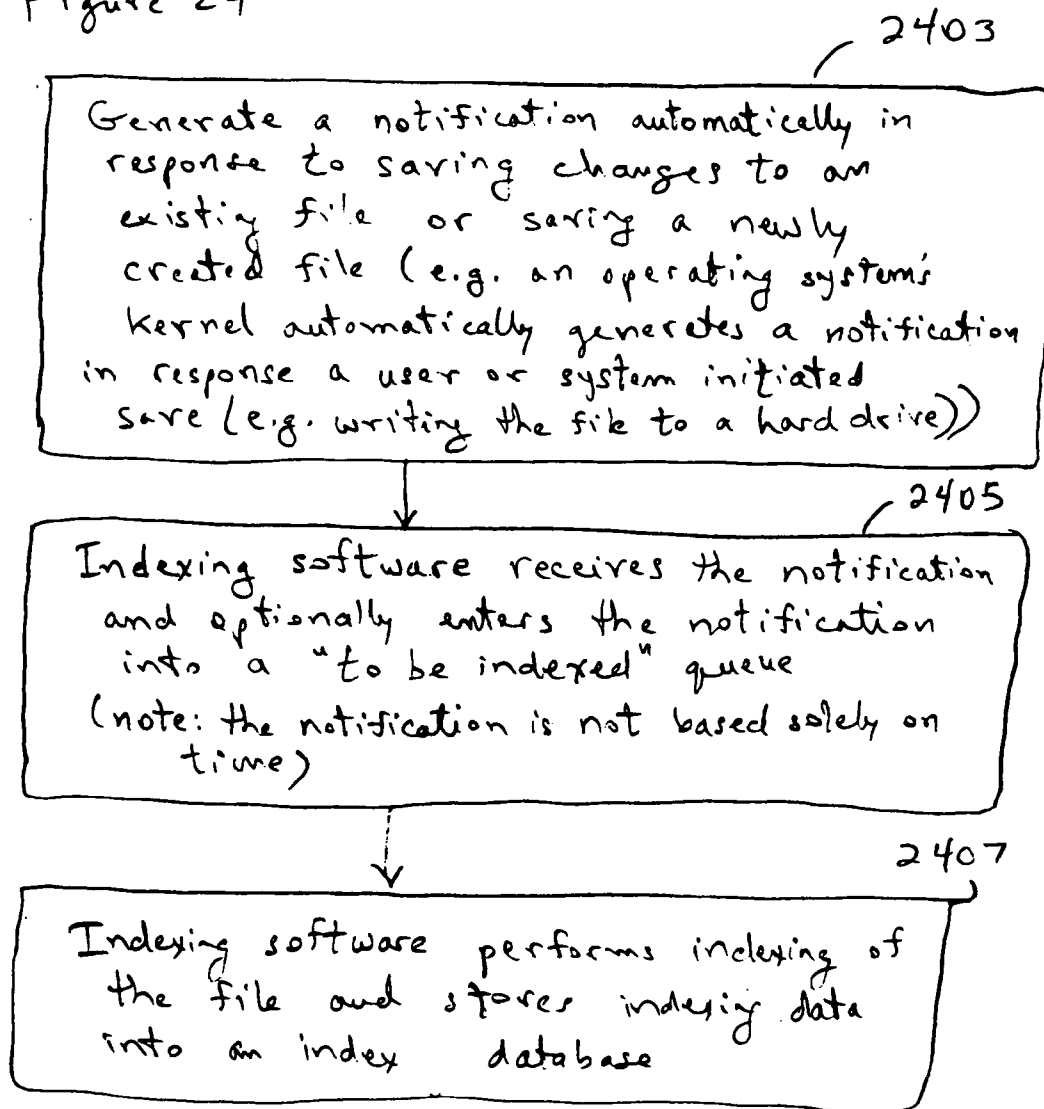 Figure 24
2403
Generate a notification automatically in
response to saving changes to an
existing file or saving a newly
created file (e.g. an operating system's
Kernel automatically generates a notification
in response a user or system initiated
save (e.g. writing the file to a hard drive))
2405
Indexing software receives the notification
and optionally enters the notification
into a "to be indexed" queue
(note: the notification is not based solely on
time)
2407
Indexing software performs indexing of
the file and stores indexing data
into an index database